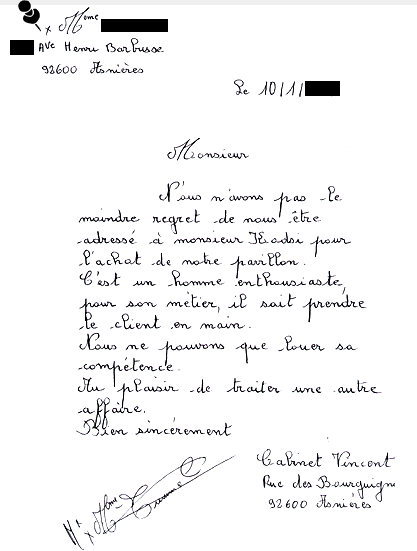 x Mme
Ave Henri Barbusse
92600 Asnières
Le 10/1/
Monsieur
Nous n'avons pas le
moindre regret de nous être
adressé à monsieur Kadsi pour
l'achat de notre pavillon.
C'est un homme enthousiaste,
pour son métier, il sait prendre
le client en main.
Nous ne pouvons que louer sa
compétence.
Au plaisir de traiter une autre
affaire.
Bien sincèrement
Cabinet Vincent
Rue des Bourguign
92600 Asnières
Mr x Mme